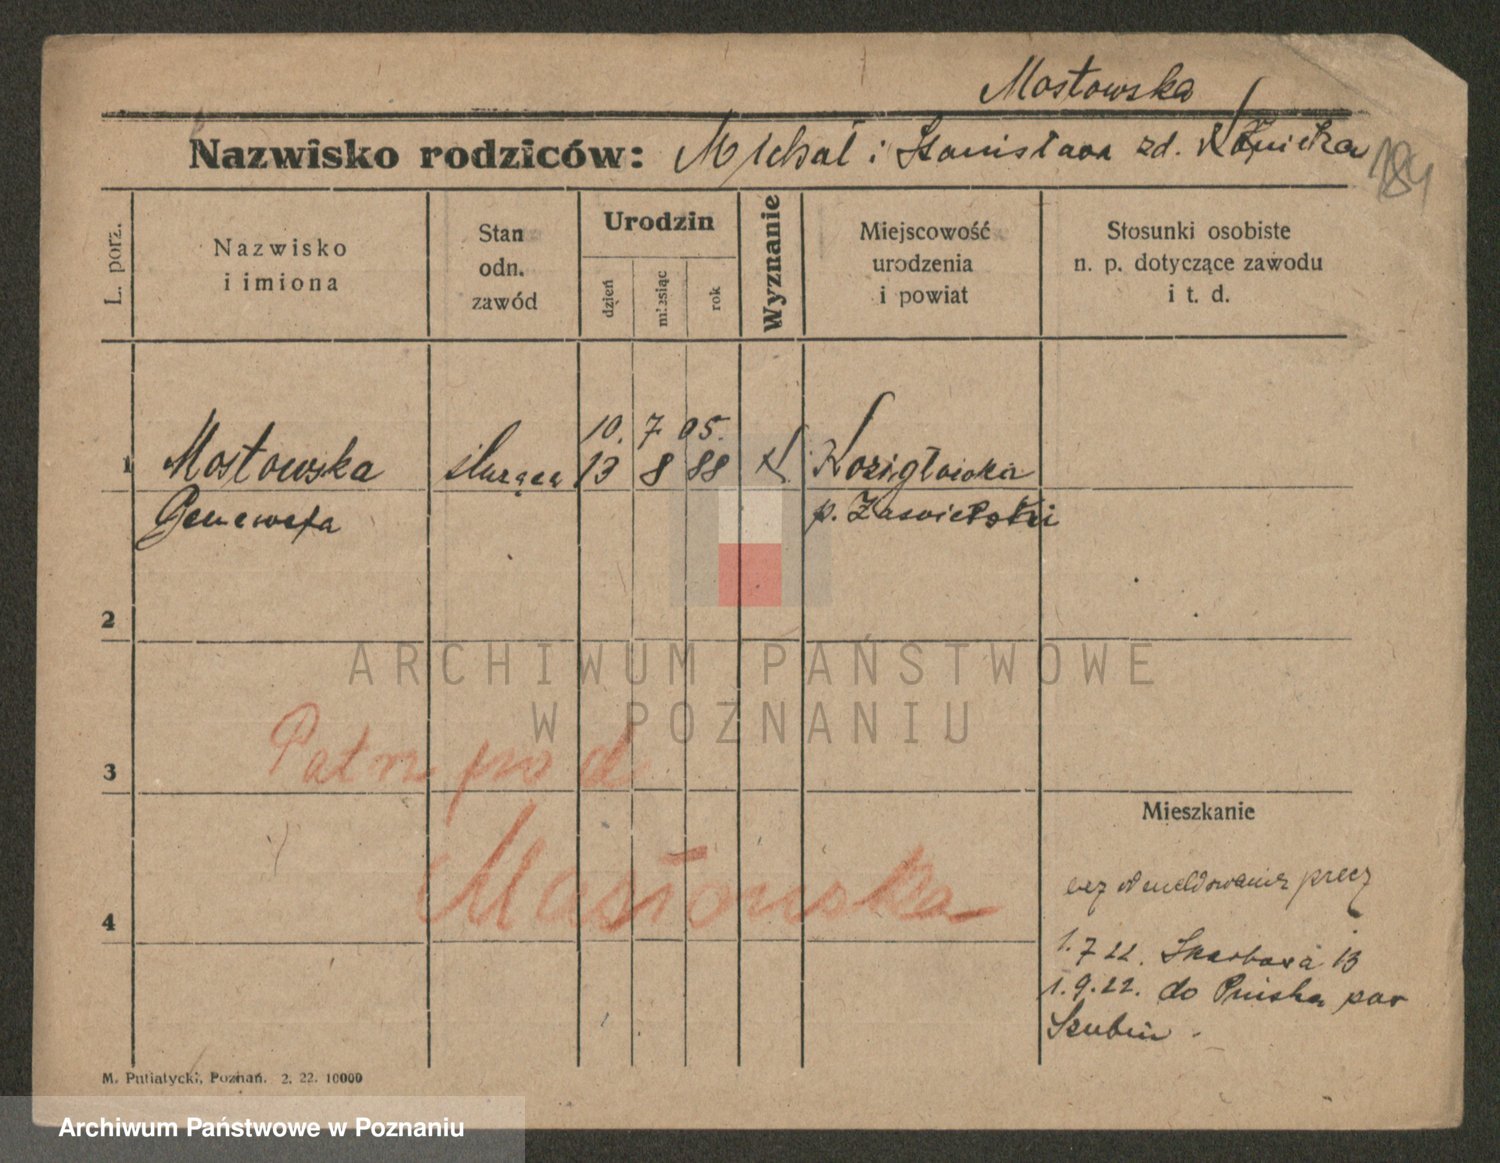 Mostowska
Nazwisko rodziców: Michał i Stanisława zd.
184
L. porz.
Nazwisko
i imiona
Stan
odn.
zawód
Urodzin
dzień
miesiąc
rok
Wyznanie
Miejscowość
urodzenia
i powiat
Stosunki osobiste
n. p. dotyczące zawodu
i t. d.
10. 7 05.
1 Mostowska służąca 13 8 88 k. Kozigłowka
Genewefa p.
2
ARCHIWUM PAŃSTWOWE
W POZNANIU
3 Patrz pod
Mieszkanie
4 Masłowska
bez odmeldowania precz
1.7 22. Skarbowa 13
1.9.22. do Pinska pow
Szubin.
M. Putiatycki, Poznań. 2. 22. 10000
Archiwum Państwowe w Poznaniu